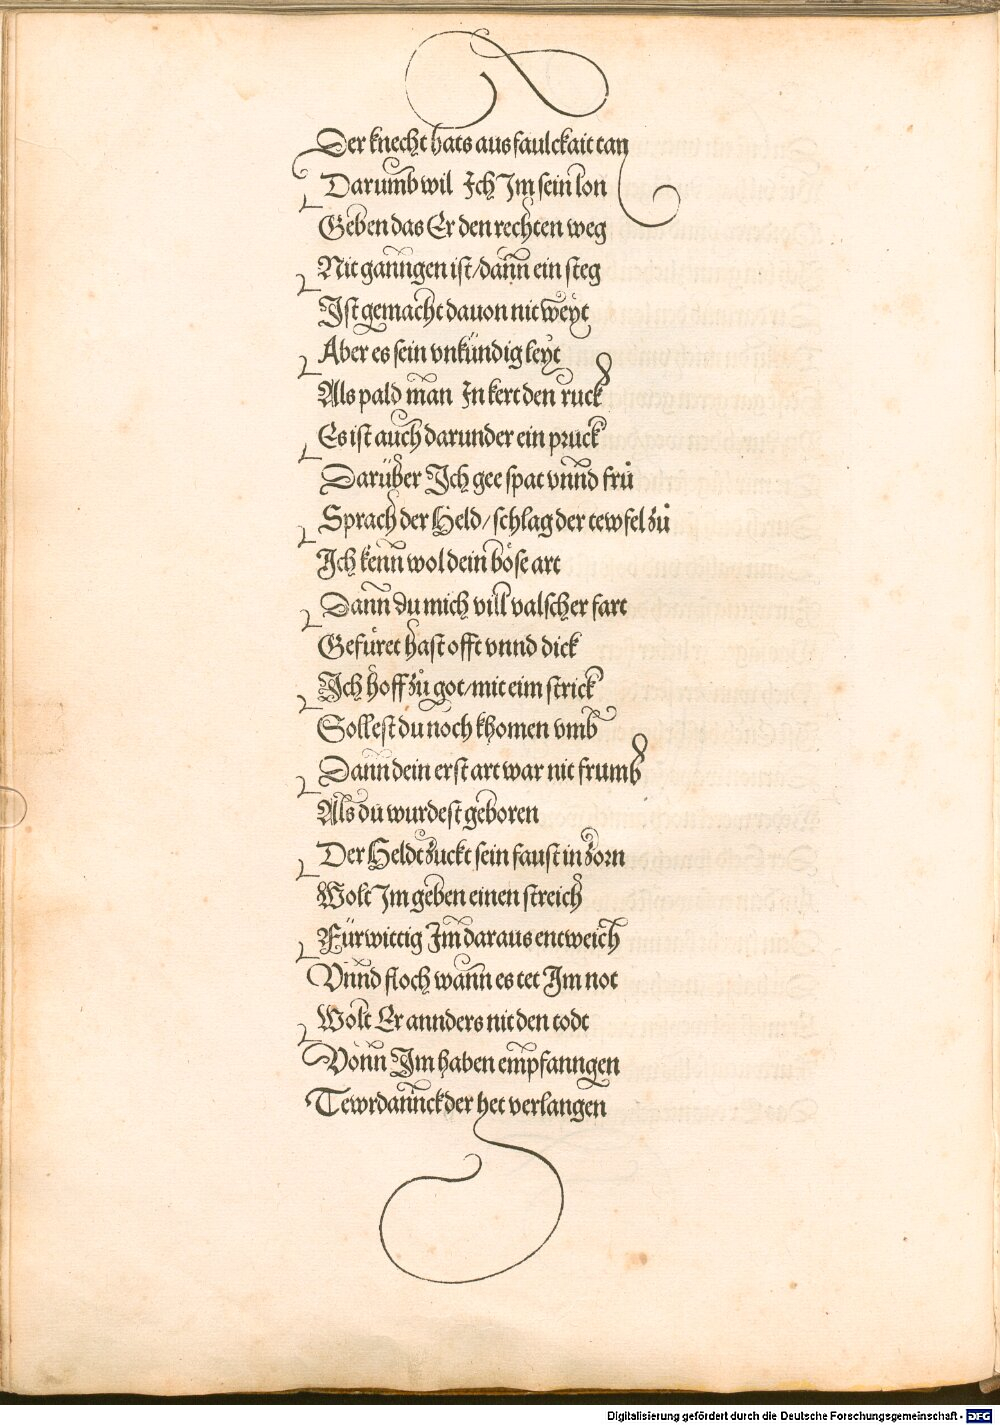 Der knecht hats aus faulckait tan
Darumb wil Ich Im sein lon
Geben das Er den rechten weg
Nit ganngen ist/dann ein steg
Ist gemacht dauon nit weyt
Aber es sein vnkündig leyt
Als pald man In kert den ruck
Es ist auch darunder ein pruck
Darüber Ich gee spat vnnd frů
Sprach der Held/schlag der tewfel zů
Ich kenn wol dein böse art
Dann du mich vill valscher fart
Gefüret hast offt vnnd dick
Ich hoff zů got/mit eim strick
Sollest du noch khomen vmb
Dann dein erst art war nit frumb
Als du wurdest geboren
Der Heldt zuckt sein faust in zorn
Wolt Im geben einen streich
Fürwittig Im daraus entweich
Vnnd floch wann es tet Im not
Wolt Er annders nit den todt
Vonn Im haben empfanngen
Tewrdannck der het verlangen
Digitalisierung gefördert durch die Deutsche Forschungsgemeinschaft - DFG